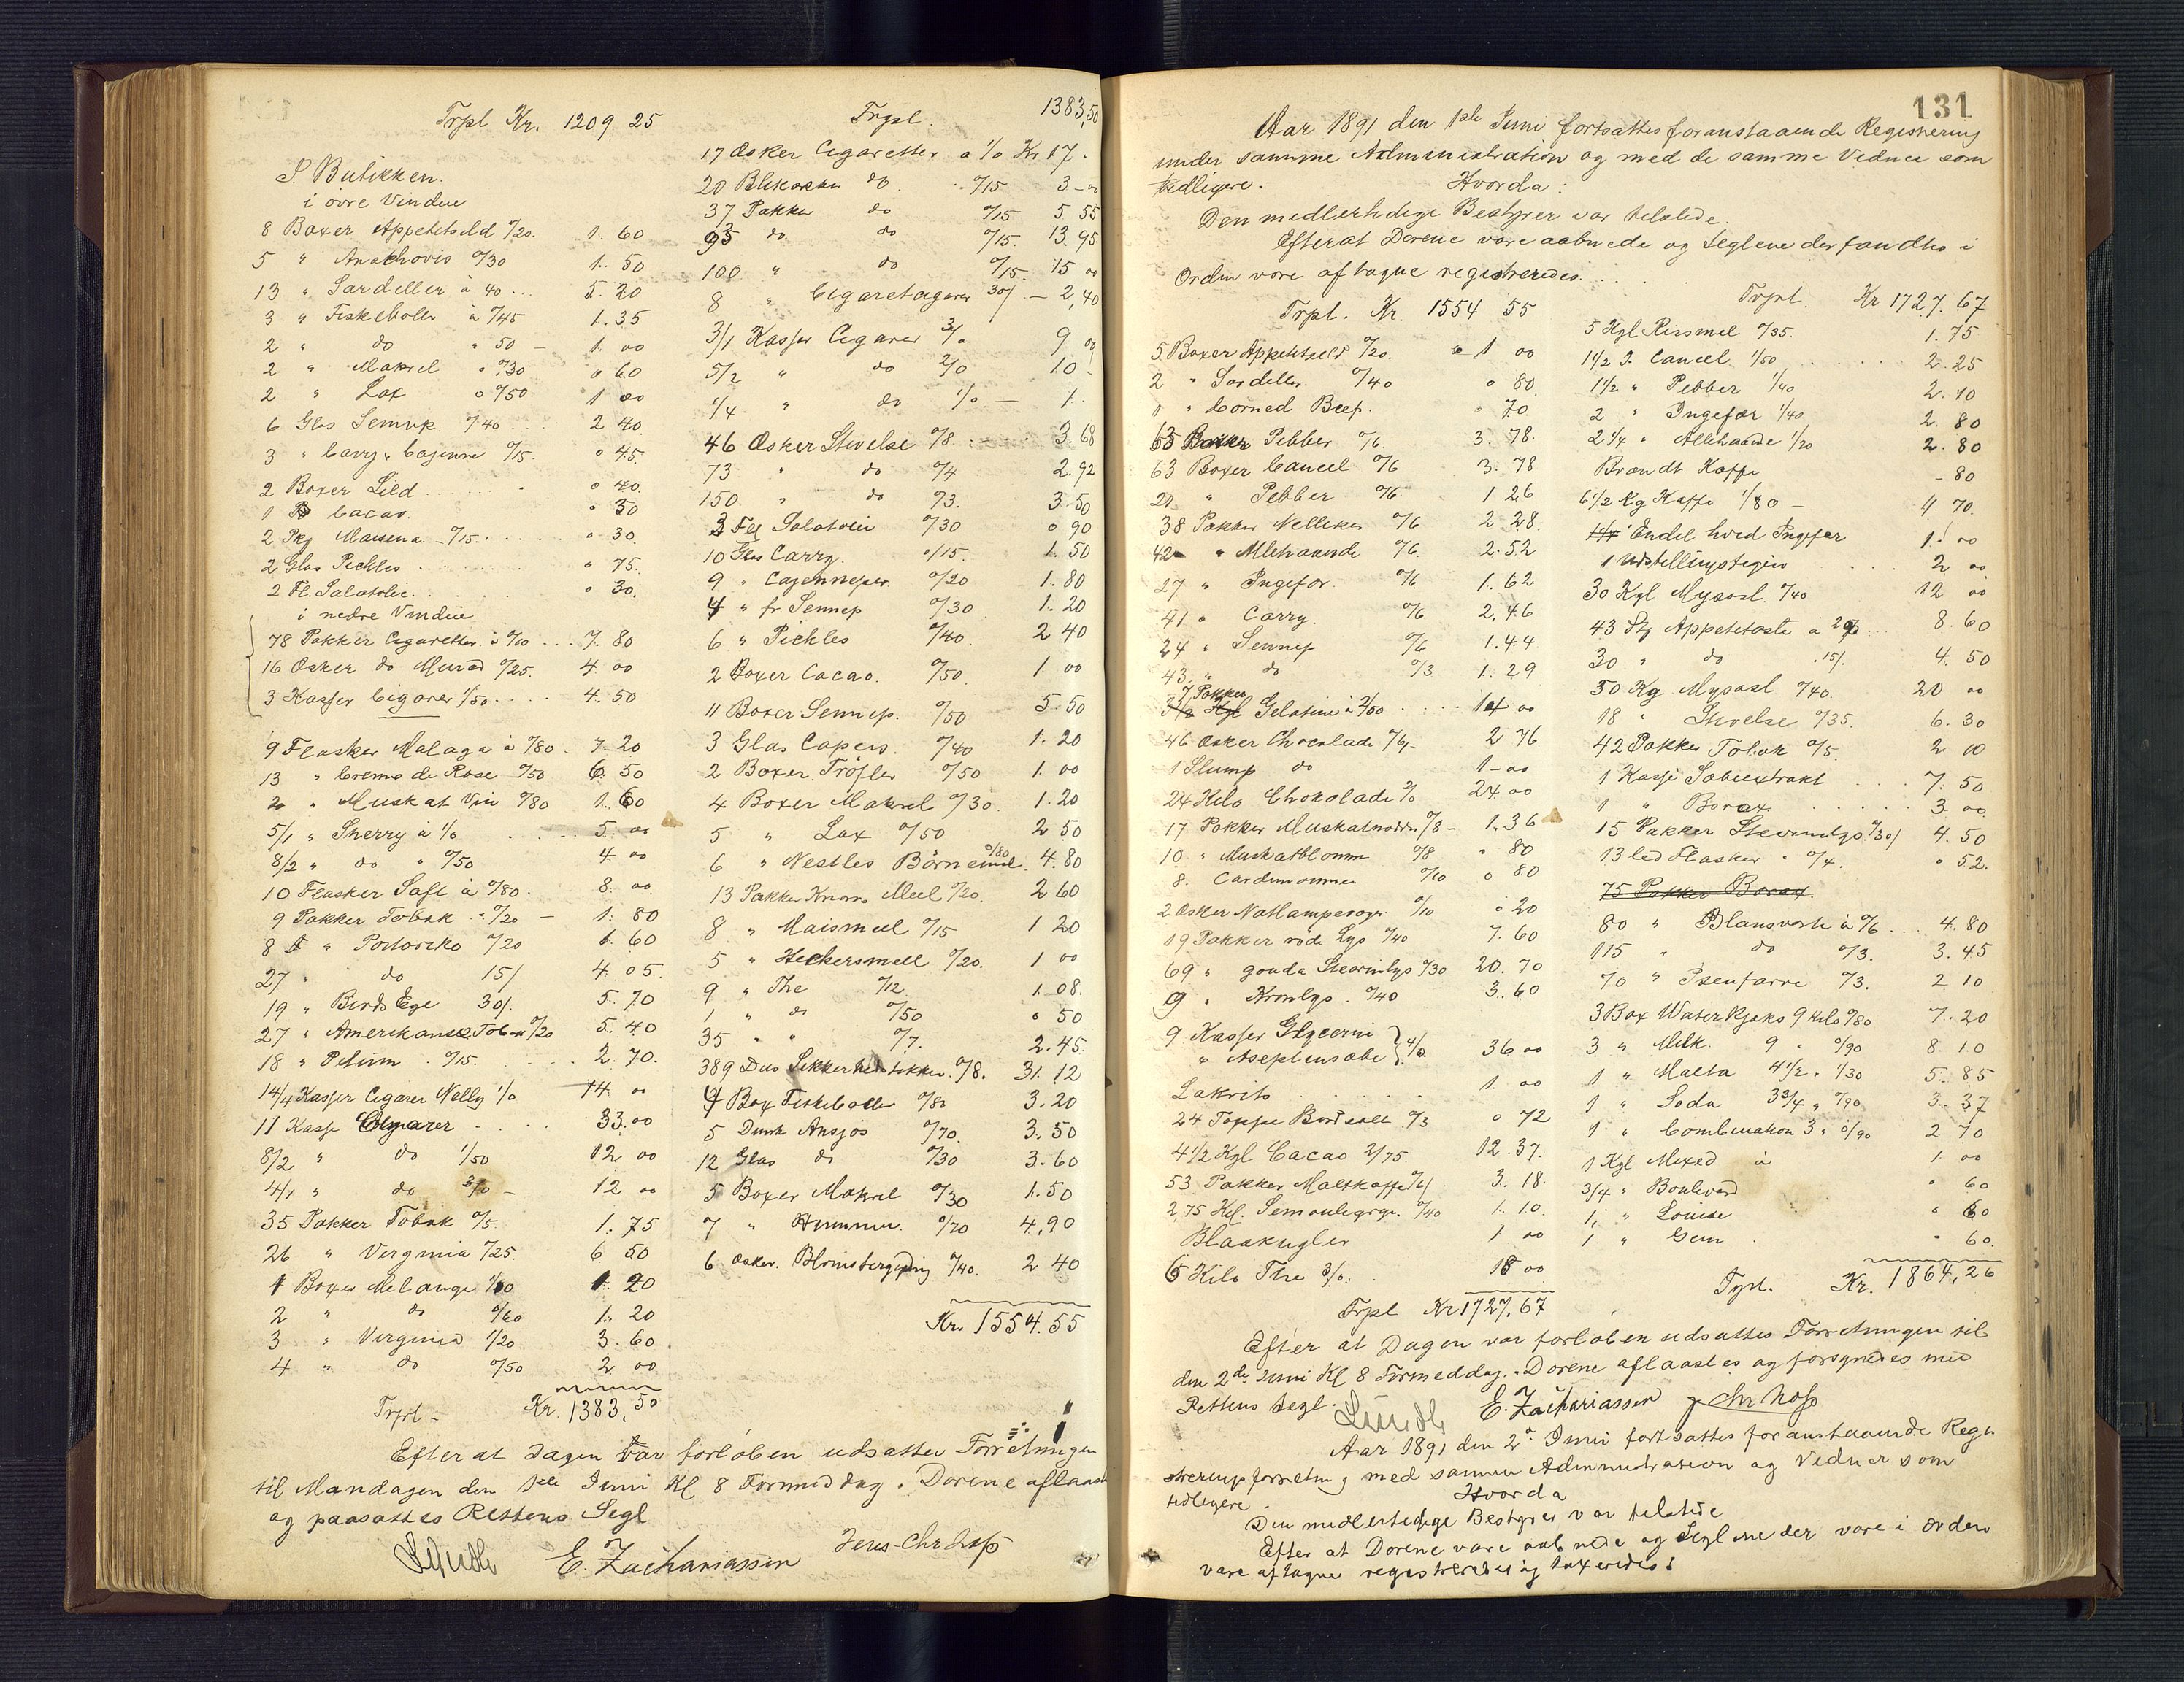 Trpl Kr. 1209. 25
I Butikken.
i övre Vindue
8 Boxer Appetitsild o/20. 1. 60
5 " Anschovis o/30 1. 50
13 " Sardeller à 40 ... 5. 20
3 " Fiskeboller à o/45 1. 35
2 " do " 50 — 1. 00
2 " Makrel o/30 0 60
2 " Lax o/50 1 00
6 Glas Sennep o/40 2 40
3 " Carry & Cajenne o/15. 0 45.
2 Boxer Sild 0 40
1 Cacao. 0 50
2 Pkj Maisena - o/15. 0 30.
2 Glas Pickles 0 75.
2 Fl. Salatolie 0 30.
i nedre Vindue
78 Pakker Cigaretter à o/10 ... 7. 80
16 Æsker do Murad o/25. 4 00
3 Kasser Cigarer 1/50 4. 50
9 Flasker Malaga à o/80. 7. 20
13 " Creme de Rose o/50 6. 50
2 " Muskat Vin o/80 1. 60
5/1 " Sherry à 1/0 5. 00
8/2 " do " o/50 4. 00
10 Flasker Saft à o/80. 8. 00.
9 Pakker Tobak " o/20 — 1. 80
8 " Portoriko o/20 1. 60
27 " do 15/ 4. 05.
19 " Birds Ege 30/. 5. 70
27 " Amerikansk Tobak o/20 5. 40
18 " Petum o/15. 2. 70.
14/4 Kasser Cigarer Nelly 1/0 14. 00
11 Kasse Cigarer 33. 00
8/2 " do 1/50 12 00
4/1 " do 3/0 — 12 00
35 Pakker Tobak o/5. 1. 75
26 " Verginia o/25. 6 50
1 Boxer Melange 1/20 1. 20
2 " do o/60 1. 20
3 " Verginia 1/20 3. 60
4 " do o/50 2 00
Trpl - Kr. 1383, 50
Efter at Dagen var forløben udsattes Forretningen
til Mandagen den 1ste Juni Kl 8 Formiddag. Dorene aflaast
og paasattes Rettens Segl
E. Zachariassen
Jens Chr Moss
Trpl. 1383,50
17 Æsker Cigaretter a 1/0 Kr 17.
20 Blikæsker do. o/15 3 - 00
37 Pakker do o/15 5 55
93 do. do o/15. 13. 95
100 " do o/15. 15 00
8 " Cigaretcigarer 30/ — 2,40
3/1 Kasser Cigarer 3/0 9 00
5/2 " do 2/0 10 -
1/4 " do 1/0 — 1.
46 Æsker Stivelse o/8 3. 68
73 " do o/4 2. 92
150 " do o/3. 3. 50
3 Flj Salatolie o/30 0 90
10 Glas Carry. o/15. 1. 50
9 " Cajennepeper o/20 1. 80
4 " fr. Sennep o/30 1. 20
6 " Pickles o/40. 2 40
2 Boxer Cacao. o/50 1 00
11 Boxer Sennep. o/50 5. 50
3 Glas Capers. o/40 1. 20
2 Boxer Tröfler o/50 1. 00
4 Boxer Makrel o/30. 1. 20
5 " Lax o/50 2 50
6 " Nestles Börnemel o/80 4. 80
13 Pakker Knorrs Meel o/20. 2 60
8 " Maismeel o/15 1 20
5 " Heckersmell o/20. 1 00
9 " The o/12 1. 08.
1 " do o/50 0 50
35 " " o/7. 2. 45.
389 Dus Sikkerhedstikker. o/8. 31. 12
4 Box Fiskeboller o/80 3. 20
5 Dunk Ansjos o/70. 3. 50
12 Glas do o/30 3. 60
5 Boxer Makrel o/30 1. 50
7 " Hummer. o/70 4. 90
6 Æsker. o/40. 2 40
Kr. 1554. 55
131
Aar 1891 den 1ste Juni fortsattes foranstaaende Registrering
under samme Administration og med de samme Vidner som
tidligere. Hvorda:
Den midlertidige Bestyrer var tilstede.
Efterat Dorene vare aabnede og Seglene der fandtes i
Orden vare aftagne registreredes.
Trpl. Kr. 1554 55
5 Boxer Appetitsild o/20. 1 00
2 " Sardeller o/40 0 80
1 " Corned Beef. 0 70
63 Boxer Pebber o/6. 3. 78.
63 Boxer Caneel o/6 3. 78
21 " Pebber o/6 1 26
38 Pakker Nelliker o/6 2. 28.
42 " Allehaande o/6. 2. 52
27 " Ingefær. o/6 1. 62
41 " Carry. o/6 2. 46
24 " Sennep o/6 1. 44
43. " do o/3. 1. 29
7 Pakker
Gelatine à 2/00 14 00
46 Æsker Chocolade o/6 — 2 76
1 Slump do 1 - 00
24 Kilo Chokolade 1/0 24 00
17 Pakker Muskatnødder o/8 — 1. 36
10 " Muskatblomme o/8 0 80
8. Cardemomme o/10 0 80
2 Æsker Natlampevæger o/10 0 20
19 Pakker røde Lys o/40 7. 60
69 " gouda Stearinlys o/30 20. 70
9 " Kronlys. o/40 3. 60
9 Kasser Glycerin
" Aseptinsæbe } 4/0. 36 00
Lakrits 1. 00
24 Toppe Bordsalt o/3 0 72
4 1/2 Kgl Cacao 2/75 12. 37.
53 Pakker Maltkaffe o/6/ 3. 18.
2,75 Kgl. Semoulegryn. o/40 1. 10.
Blaakugler 1 00
6 Kilo The 3/0. 18 00
Trpl Kr 1727. 67
Trpl. Kr 1727. 67
5 Kgl Rismel o/35. 1. 75
1 1/2 " Caneel 1/50 2. 25
1 1/2 " Pebber 1/40 2. 10
2 " Ingefær 1/40 2. 80
2 1/4 " Allehaande 1/20 2. 80
Brændt Kaffe - 80
6 1/2 Kg Kaffe 1/80 — 11. 70.
Endel hvid Ingefær 1. 00
1 Udstillingstegin 2 00
30 Kgl Mysost o/40 12 00
43 Stj Appetitoste à 20/ 8. 60
30 " do 15/. 4. 50
50 Kg. Mysost o/40. 20 00
18 " Stivelse o/35. 6. 30
42 Pakker Tobak o/5. 2 10
1 Kasse Sæbeextrakt 7. 50
1 " Borax. 3 00.
15 Pakker Stearinlys. o/30/ 4. 50
13 led Flasker " o/4. 0 52.
75 Pakker Borax.
80 " Blansværte à o/6 4. 80
115 " do o/3. 3. 45
70 " Isenfarve o/3. 2 10
3 Box Waterkjæks 9 Kilo o/80 7. 20
3 " Milk. 9 " o/90 8. 10
1 " Malta 4 1/2 " 1/30 5. 85
1 " Soda 3 3/4 " o/90 3. 37
1 " Combination 3 " o/90 2 70
1 Kgl Mixed à 1. 00
3/4 " Boulevard " 60
1 " Louise " 60
1 " Gem " 60.
Trpl. Kr. 1864, 26
Efter at Dagen var forløben udsattes Forretningen til
den 2den Juni Kl 8 Formeddag. Dorene aflaastes og forsynedes med
Rettens Segl.
E. Zachariassen J Chr Moss
Aar 1891 den 2den Juni fortsattes foranstaaende Regi-
streringsforretning med samme Administration og Vidner som
tidligere. Hvorda
Den midlertidige Bestyrer var tilstede
Efter at Dorene vare aabnede og Seglene der vare i Orden
vare aftagne registreredes og taxeredes: